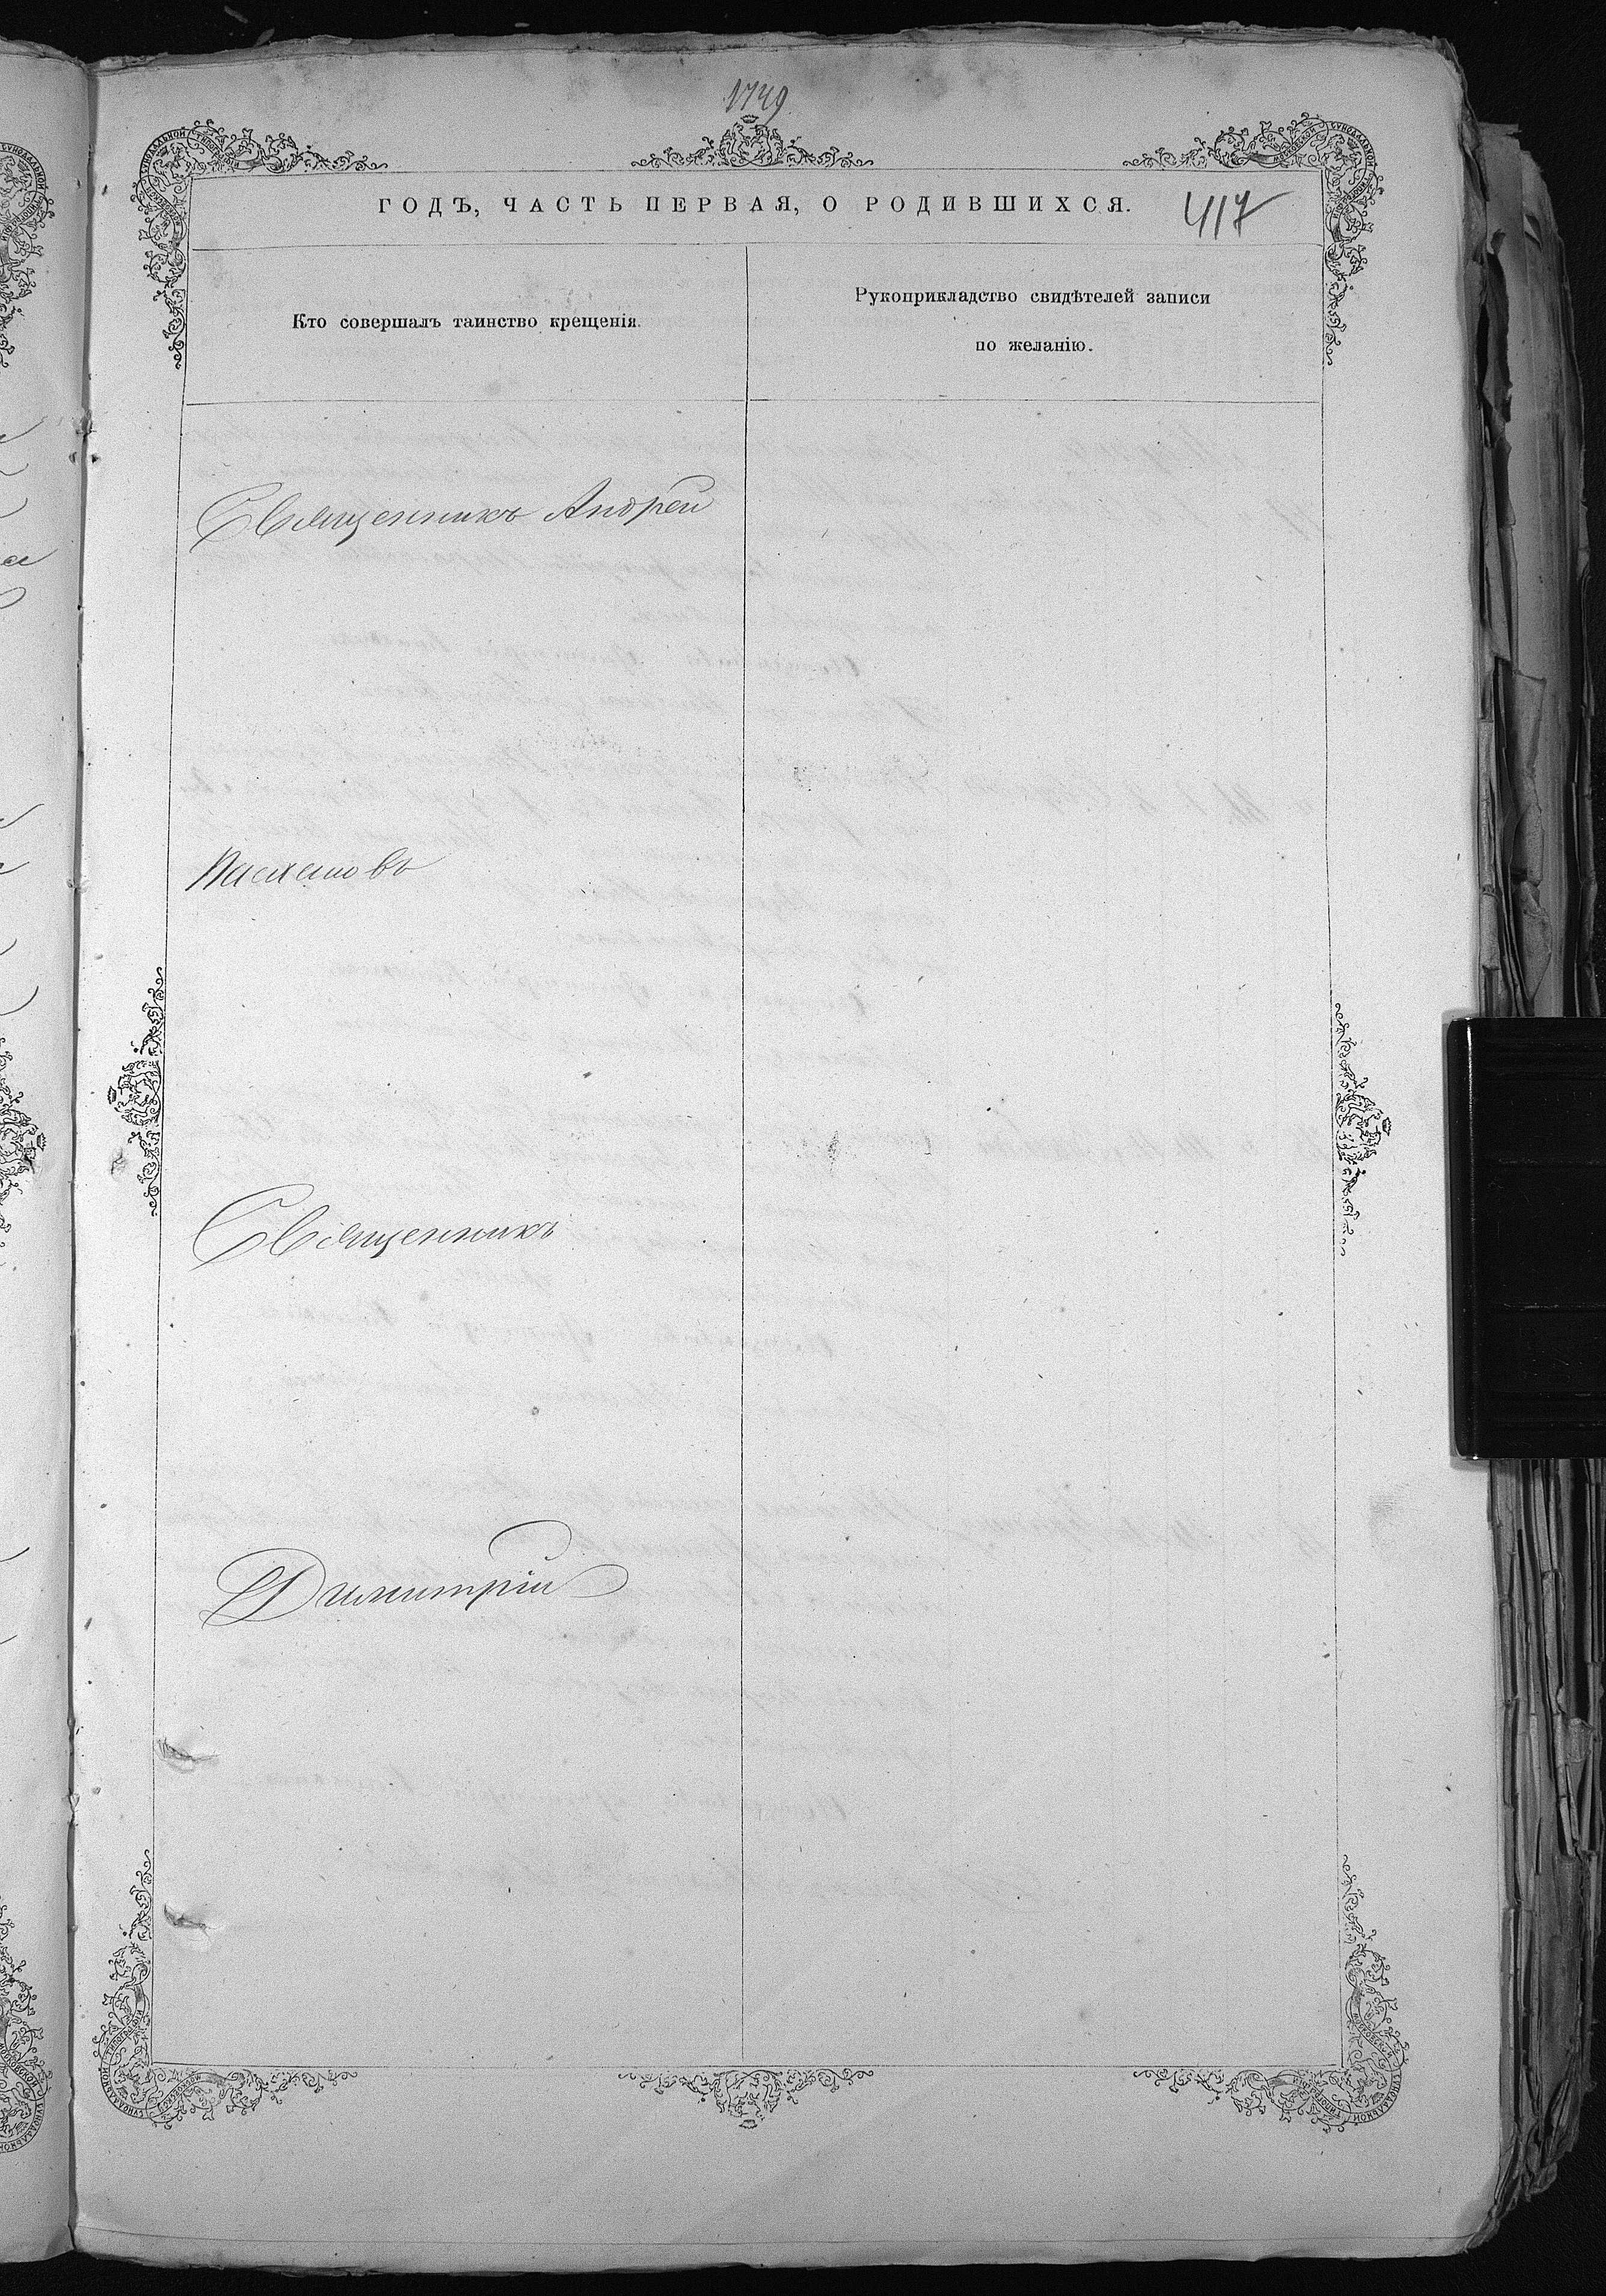 1749
ГОДЪ, ЧАСТЬ ПЕРВАЯ, О РОДИВШИХСЯ.
417
Кто совершалъ таинство крещенія.
Рукоприкладство свидѣтелей записи
по желанію.
Священникъ Андрей
Священникъ
Димитрій